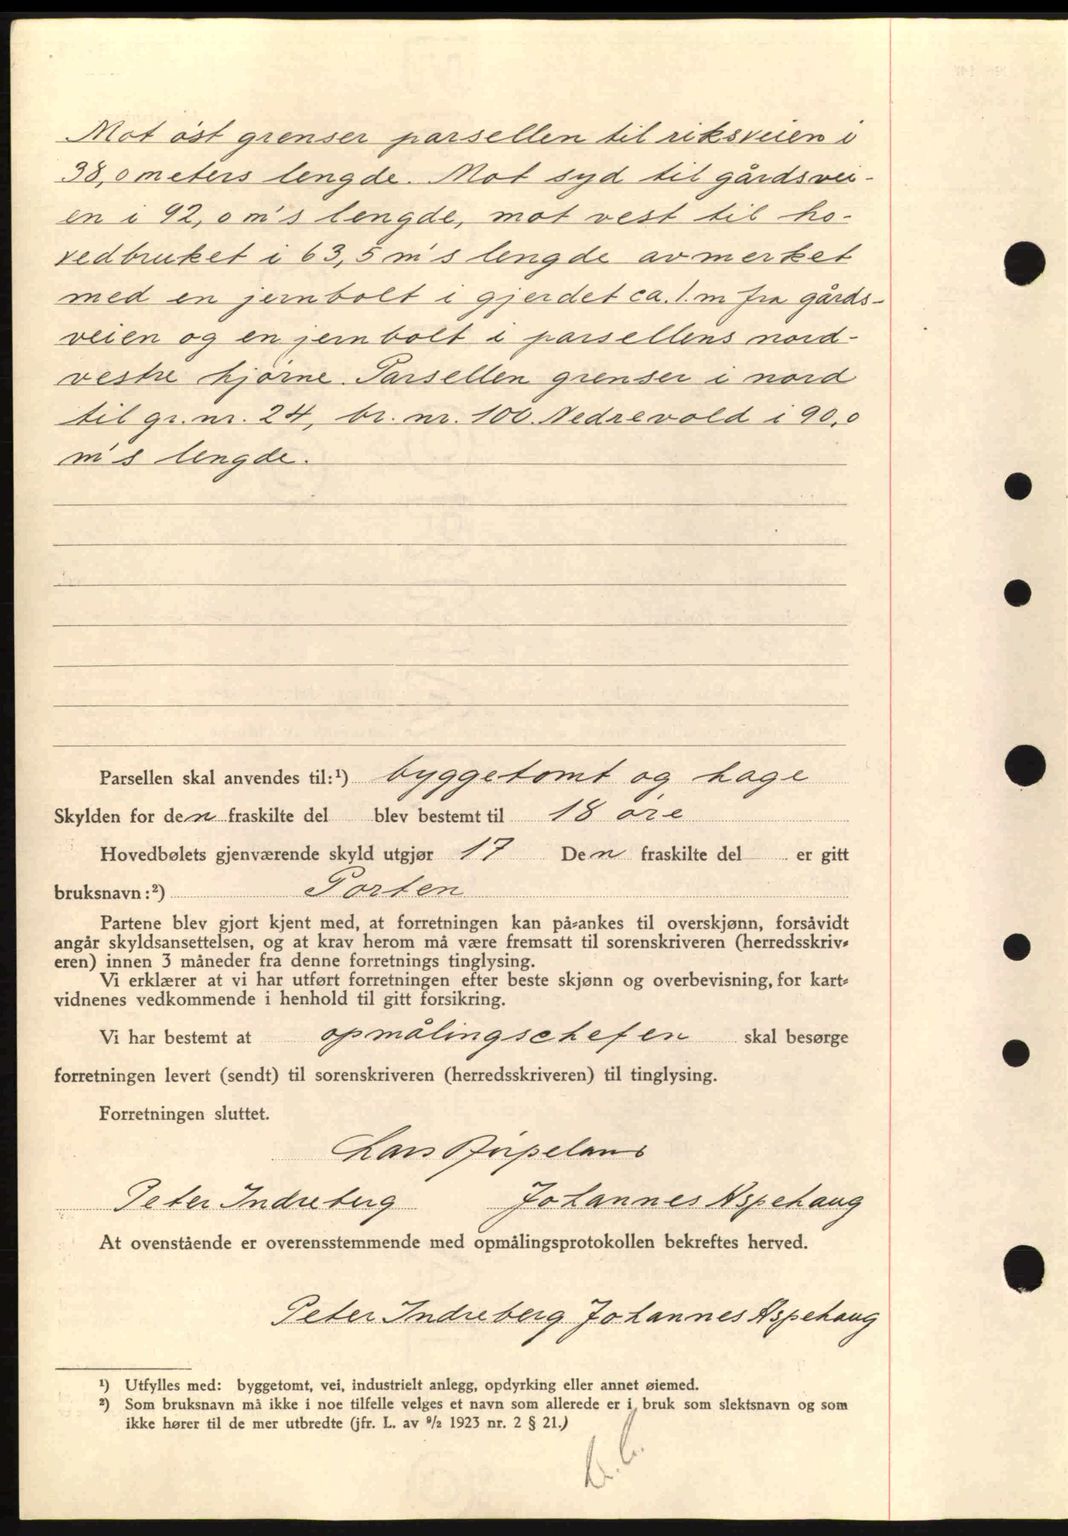 Mot øst grenser parsellen til riksveien i
38,0 meters lengde. Mot syd til gårdsvei-
en i 92,0 m's lengde, mot vest til ho-
vedbruket i 63,5 m's lengde avmerket
med en jernbolt i gjerdet ca. 1. m fra gårds-
veien og en jernbolt i parsellens nord-
vestre hjørne. Parsellen grenser i nord
til gr. nr. 24, br. nr. 100. Nedrevold i 90,0
m's lengde.
Parsellen skal anvendes til:¹) byggetomt og hage
Skylden for den fraskilte del blev bestemt til 18 øre
Hovedbølets gjenværende skyld utgjør 17 Den fraskilte del er gitt
bruksnavn:²) Porten
Partene blev gjort kjent med, at forretningen kan på-ankes til overskjønn, forsåvidt
angår skyldsansettelsen, og at krav herom må være fremsatt til sorenskriveren (herredsskriv-
eren) innen 3 måneder fra denne forretnings tinglysing.
Vi erklærer at vi har utført forretningen efter beste skjønn og overbevisning, for kart-
vidnenes vedkommende i henhold til gitt forsikring.
Vi har bestemt at opmålingschefen skal besørge
forretningen levert (sendt) til sorenskriveren (herredsskriveren) til tinglysing.
Forretningen sluttet.
Lars
Peter Indreberg Johannes Aspehaug
At ovenstående er overensstemmende med opmålingsprotokollen bekreftes herved.
Peter Indreberg Johannes Aspehaug
¹) Utfylles med: byggetomt, vei, industrielt anlegg, opdyrking eller annet øiemed.
²) Som bruksnavn må ikke i noe tilfelle velges et navn som allerede er i bruk som slektsnavn og som
ikke hører til de mer utbredte (jfr. L. av ⁹/₂ 1923 nr. 2 § 21.)